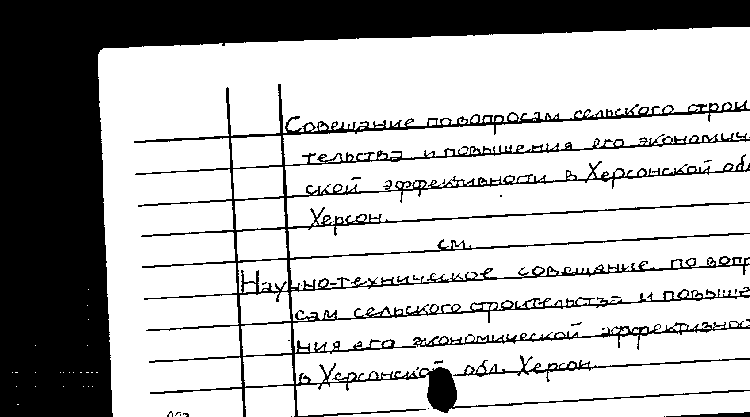 Совещание по вопросам сельского строи
тельства и повышения его экономич
ской эффективности в Херсонской обл
Херсон.
см.
Научно-техническое совещание по вопр
сам сельского строительства и повыше
ния его экономической эффективнос
в Херсонской обл. Херсон.